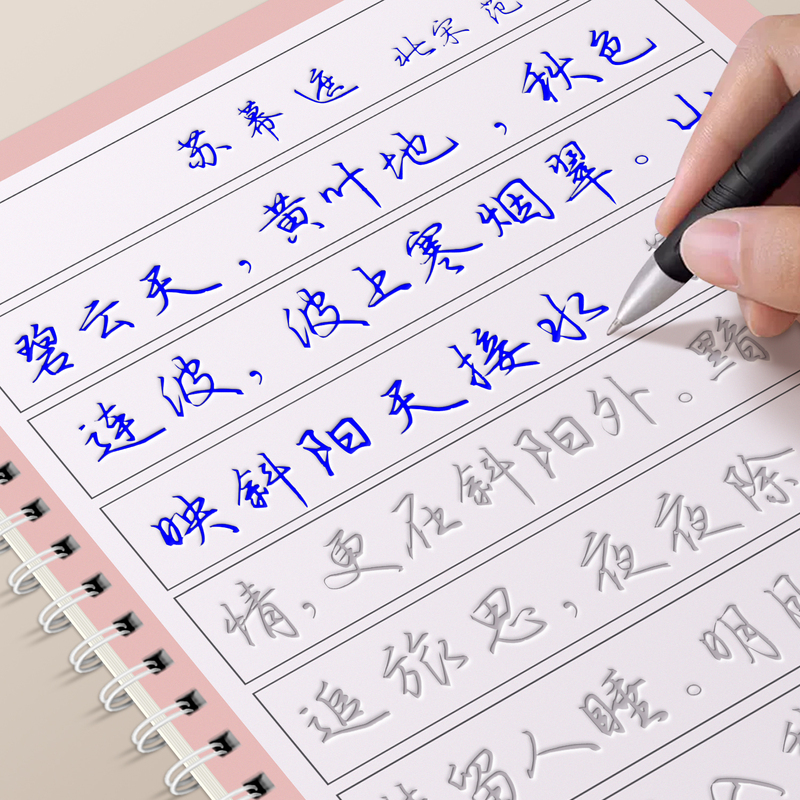 苏幕遮 北宋 范
碧云天，黄叶地，秋色
连波，波上寒烟翠。山
映斜阳天接水
情，更在斜阳外。黯
追旅思，夜夜除
留人睡。明月